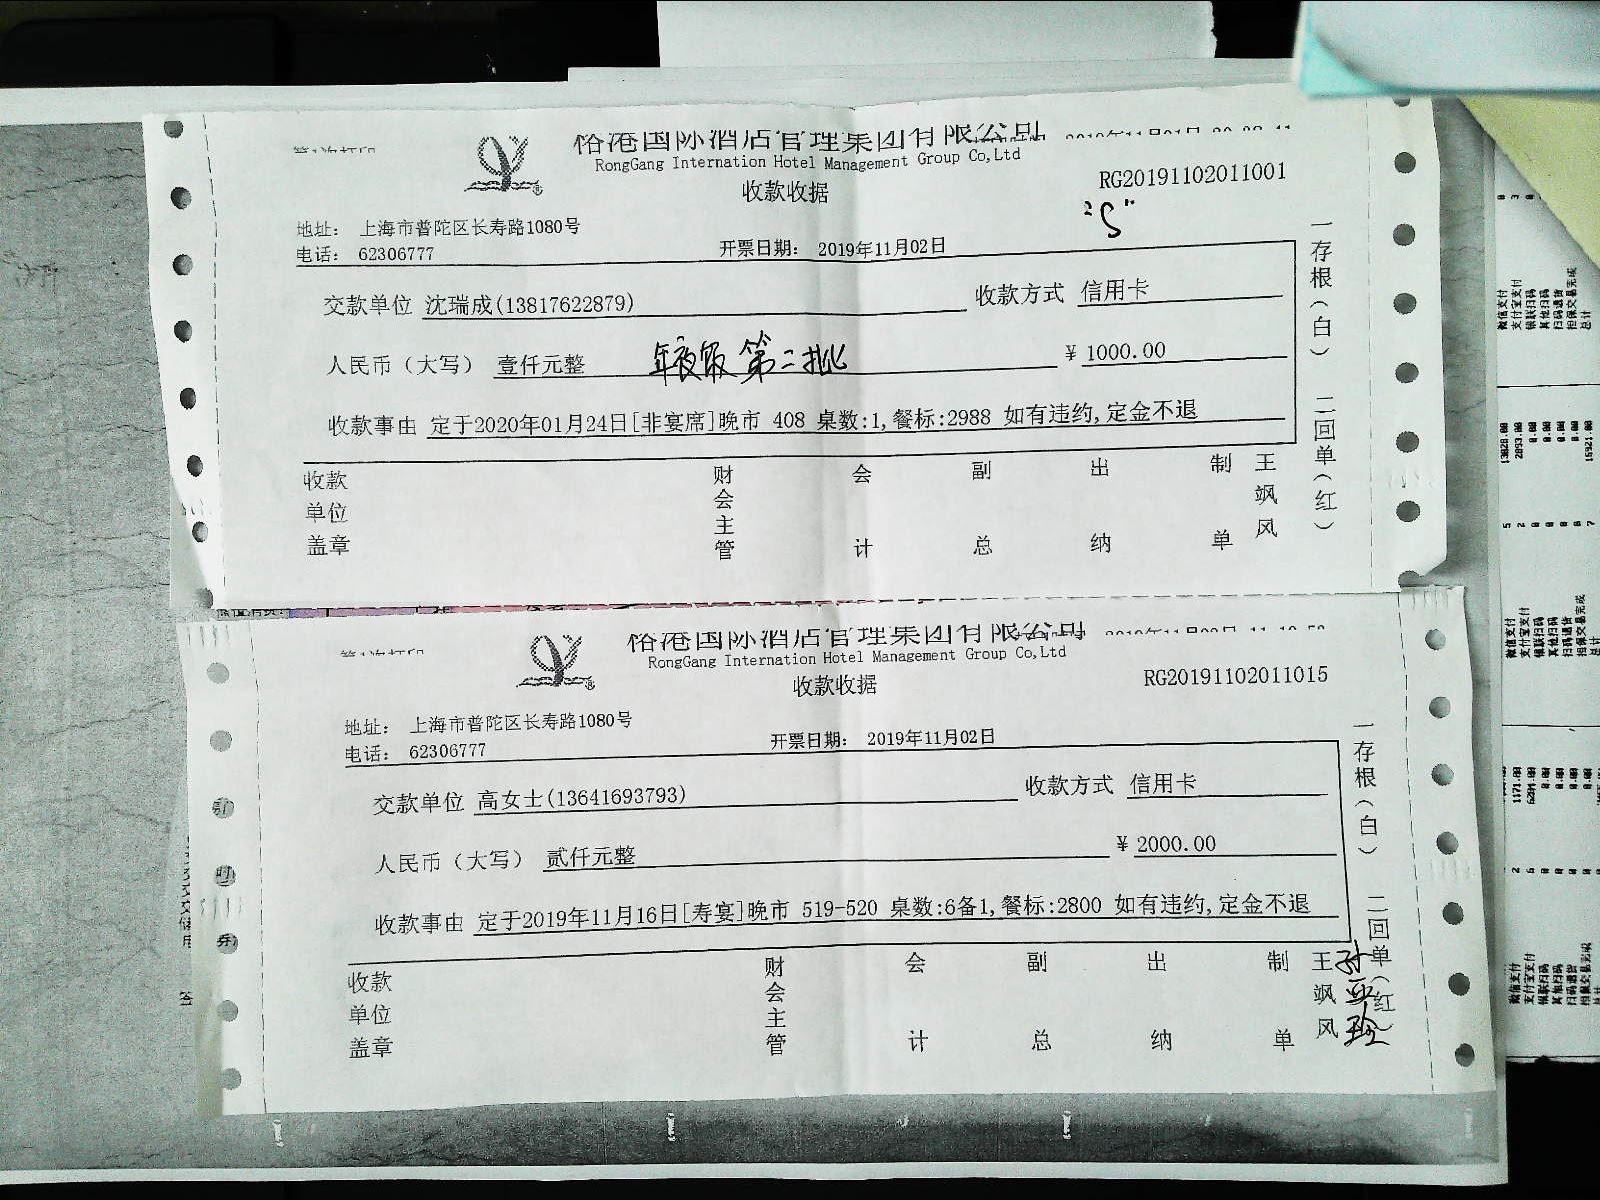 格港国际酒店管理集团有限公司
RongGang Internation Hotel Management Group Co,Ltd
收款收据
RG20191102011001
"S"
地址： 上海市普陀区长寿路1080号
电话： 62306777
开票日期： 2019年11月02日
交款单位 沈瑞成(13817622879) 收款方式 信用卡
人民币（大写） 壹仟元整 年夜饭 第二批 ¥ 1000.00
收款事由 定于2020年01月24日[非宴席]晚市 408 桌数:1,餐标:2988 如有违约,定金不退
收款单位盖章 财会主管 会计 副总 出纳 制单 王飒风
一存根（白） 二回单（红）
格港国际酒店管理集团有限公司
RongGang Internation Hotel Management Group Co,Ltd
收款收据
RG20191102011015
地址： 上海市普陀区长寿路1080号
电话： 62306777
开票日期： 2019年11月02日
交款单位 高女士(13641693793) 收款方式 信用卡
人民币（大写） 贰仟元整 ¥ 2000.00
收款事由 定于2019年11月16日[寿宴]晚市 519-520 桌数:6备1,餐标:2800 如有违约,定金不退
收款单位盖章 财会主管 会计 副总 出纳 制单 王飒风
一存根（白） 二回单（红）
微信支付
支付宝支付
银联扫码
其他扫码
扫码退货
担保交易完成
总计